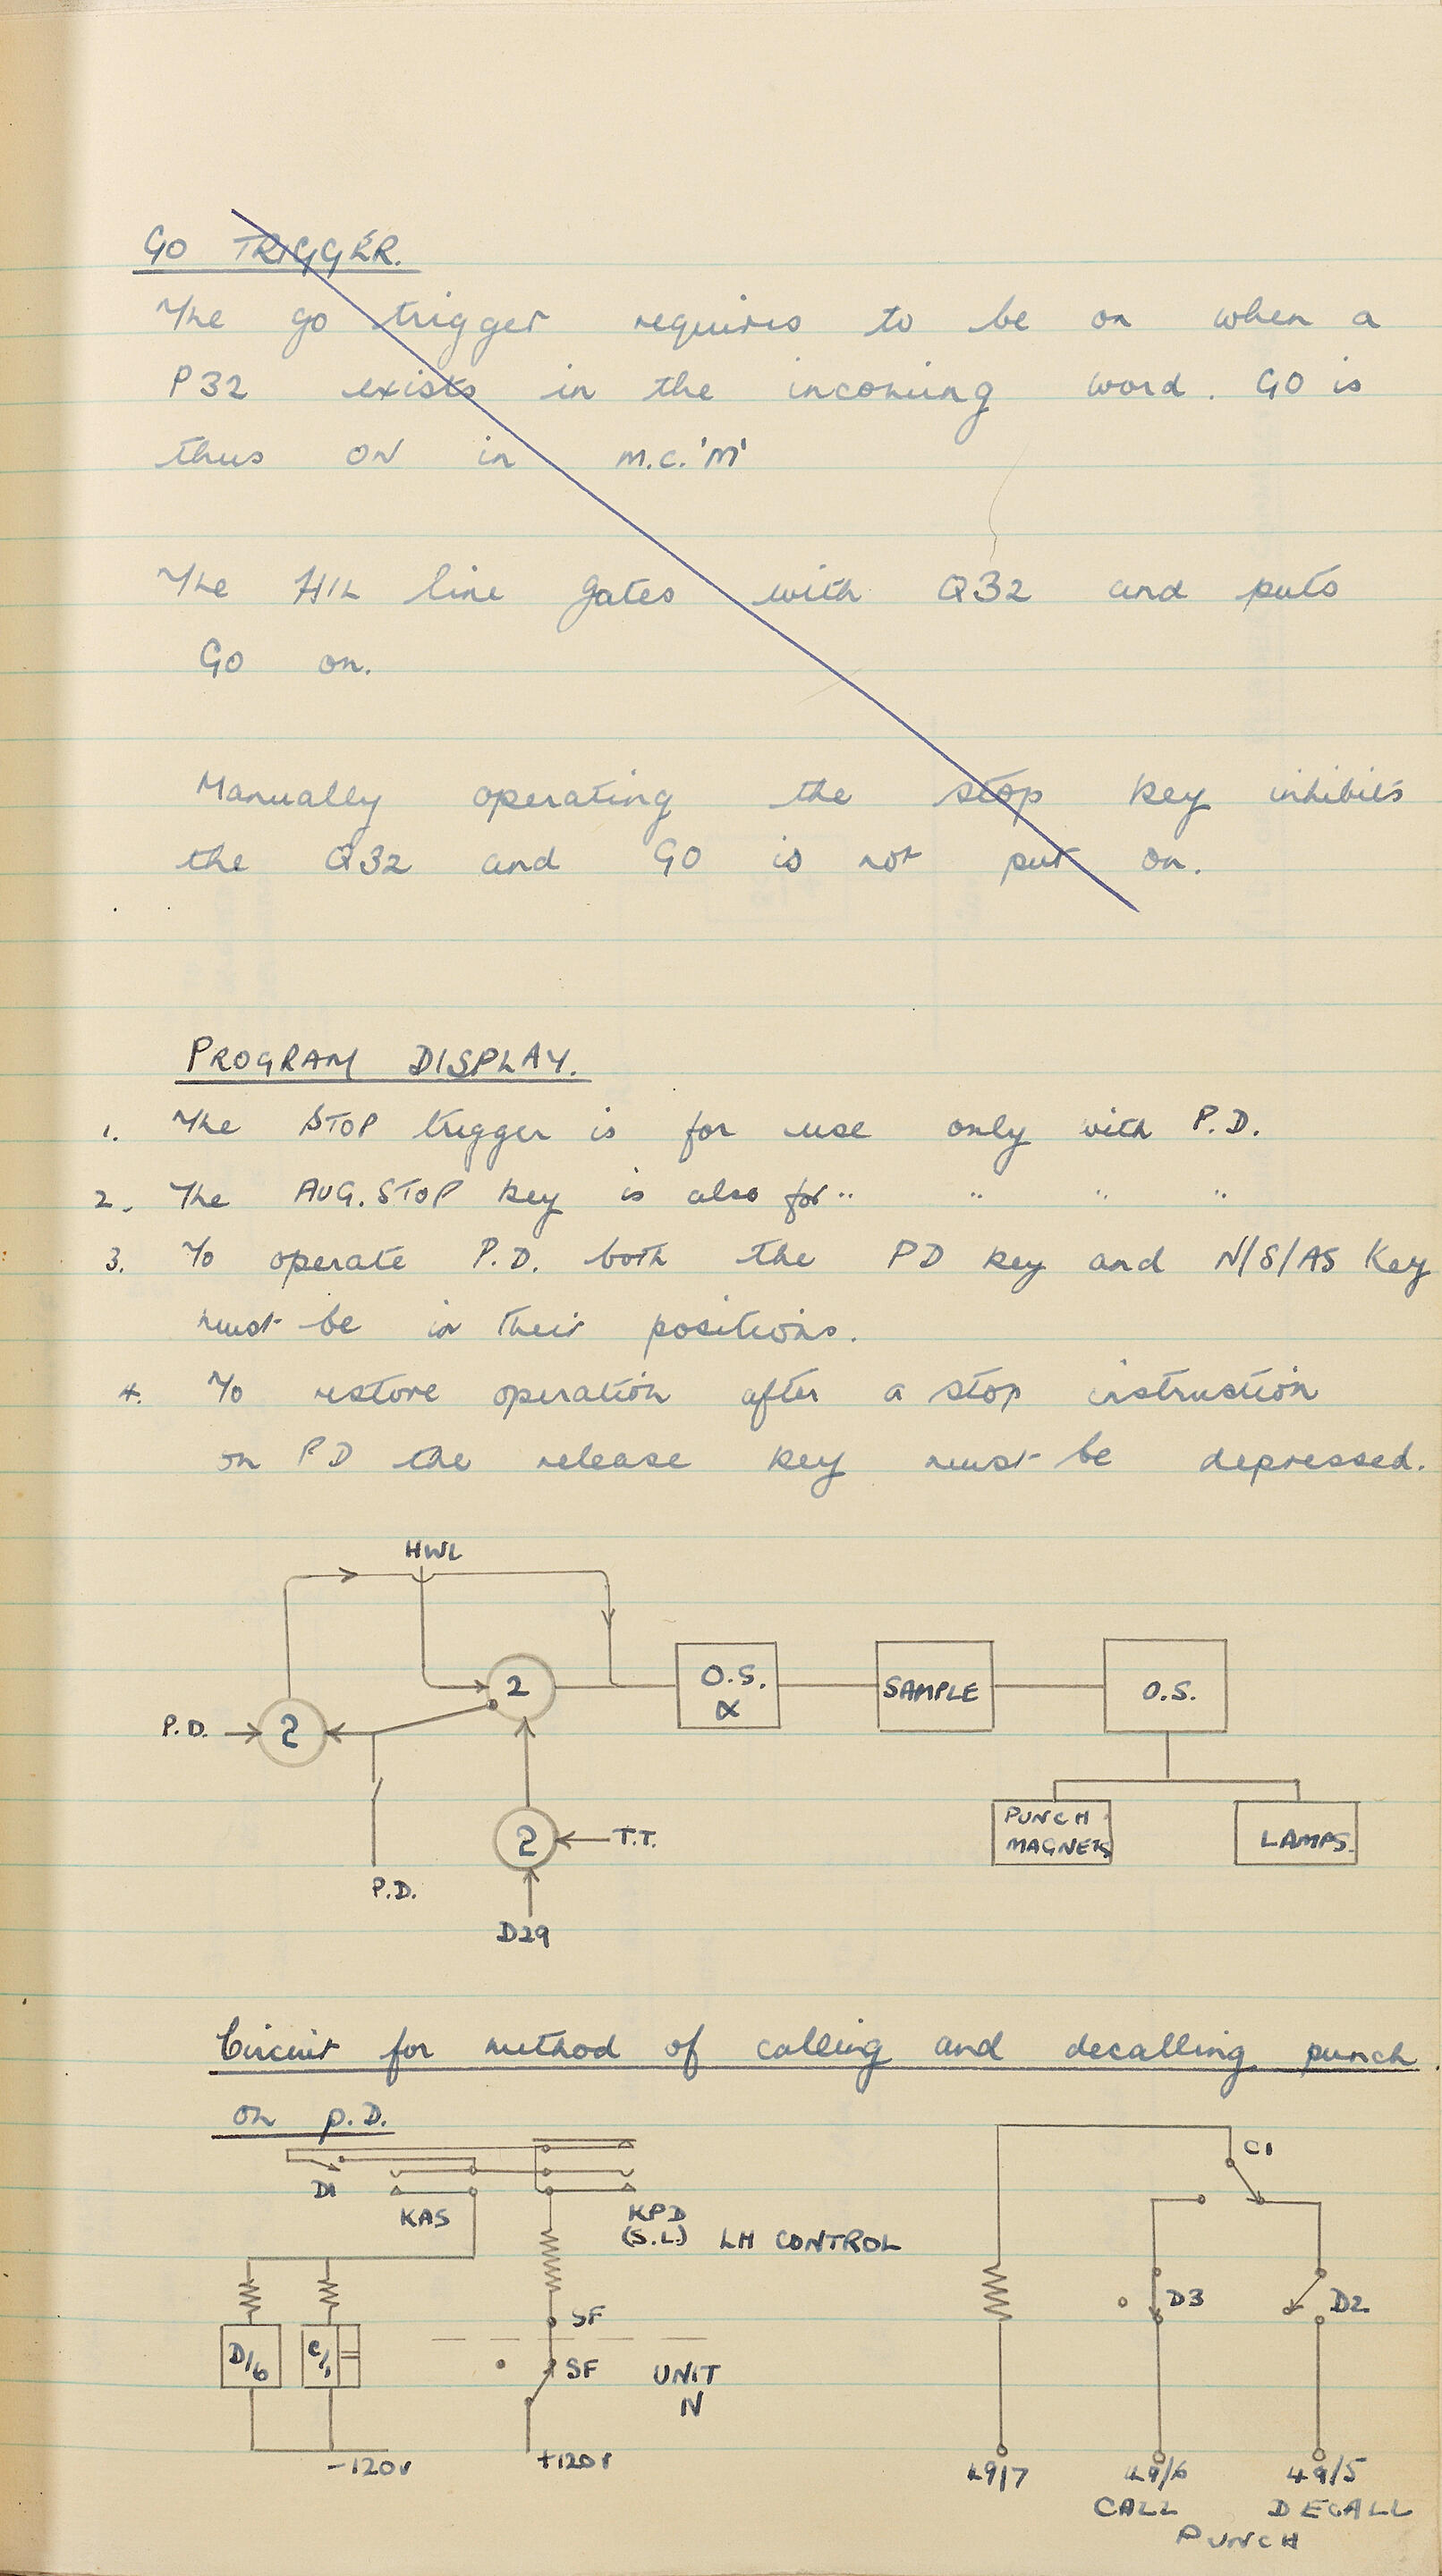 GO TRIGGER.
The go trigger requires to be on when a
P32 exists in the incoming word. GO is
thus ON in m.c.'M'
The line gates with Q32 and puts
GO on.
Manually operating the stop key inhibits
the Q32 and GO is not put on.
PROGRAM DISPLAY.
1. The STOP trigger is for use only with P.D.
2. The AUG. STOP key is also for " " " "
3. To operate P.D. both the PD key and N/S/AS Key
must be in their positions.
4. To restore operation after a stop instruction
on PD the release key must be depressed.
HWL
2
O.S.
∝
SAMPLE
O.S.
P.D.
2
2
T.T.
PUNCH
MAGNETS
LAMPS.
P.D.
D29
Circuit for method of calling and decalling punch.
on p.D.
D1
KAS
KPD
(S.L.)
LH CONTROL
C1
SF
D3
D2
D/6
C/1
SF
UNIT
N
-120V
+120V
49/7
49/6
49/5
CALL
DECALL
PUNCH